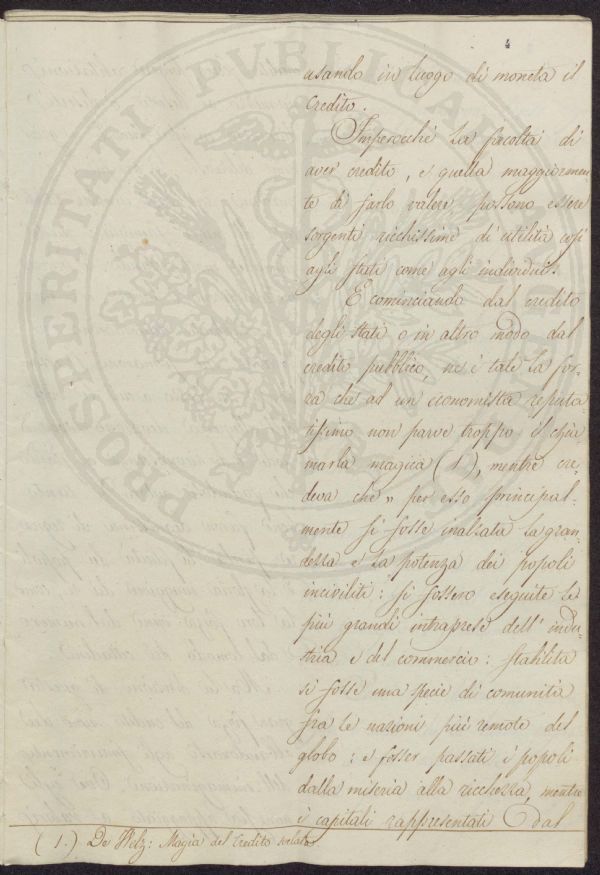 4
usando in luogo di moneta il
credito.
Imperocchè la facoltà di
aver credito, e quella maggiormen
te di farlo valere possono essere
sorgenti ricchissime di utilità così
agli Stati come agli individui.
E cominciando dal credito
degli Stati o in altro modo dal
credito pubblico, ne è tale la for-
za che ad un economista reputa-
tissimo non parve troppo il chia
marla magica (1), mentre cre-
deva che „ per esso principal-
mente si fosse inalzata la gran-
dezza e la potenza dei popoli
inciviliti: si fossero eseguite le
più grandi intraprese dell' indu-
stria e del commercio: stabilita
si fosse una specie di comunità
fra le nazioni più remote del
globo: e fosser passati i popoli
dalla miseria alla ricchezza, mentre
i capitali rappresentati dal
(1.) De Welz: Magia del Credito svelata
PROSPERITATI PVBLICAE